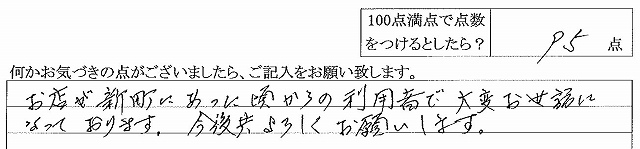 100点満点で点数
をつけるとしたら？ 95 点
何かお気づきの点がございましたら、ご記入をお願い致します。
お店が新町にあった頃からの利用者で大変お世話に
なっております。今後共よろしくお願いします。